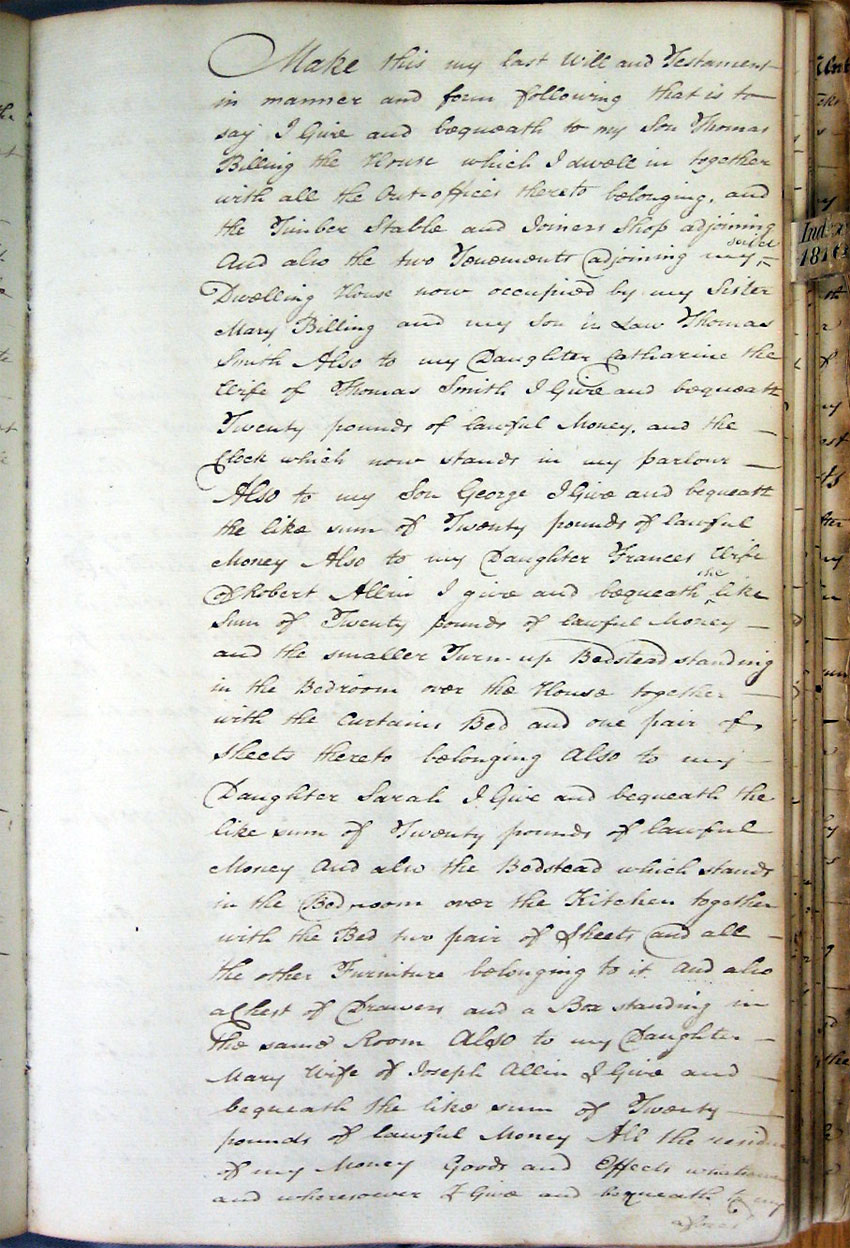 Make this my last Will and Testament
in manner and form following that is to
say I Give and bequeath to my Son Thomas
Billing the House which I dwell in together
with all the Out-offices thereto belonging, and
the Timber Stable and Joiners Shop adjoining
And also the two Tenements adjoining my
Dwelling House now occupied by my Sister
Mary Billing and my Son in Law Thomas
Smith Also to my Daughter Catharine the
Wife of Thomas Smith I Give and bequeath
Twenty pounds of lawful Money, and the
Clock which now stands in my parlour
Also to my Son George I Give and bequeath
the like sum of Twenty pounds of lawful
Money Also to my Daughter Frances Wife
of Robert Allin I give and bequeath the like
Sum of Twenty pounds of lawful Money
and the smaller Turn-up Bedstead standing
in the Bedroom over the House together
with the Curtains Bed and one pair of
Sheets thereto belonging Also to my
Daughter Sarah I Give and bequeath the
like sum of Twenty pounds of lawful
Money And also the Bedstead which stands
in the Bedroom over the Kitchen together
with the Bed two pair of Sheets and all
the other Furniture belonging to it And also
a Chest of Drawers and a Box standing in
the same Room Also to my Daughter
Mary Wife of Joseph Allin I Give and
bequeath the like sum of Twenty
pounds of lawful Money All the residue
of my Money Goods and Effects whatsoever
and wheresoever I Give and bequeath to my
Index
181